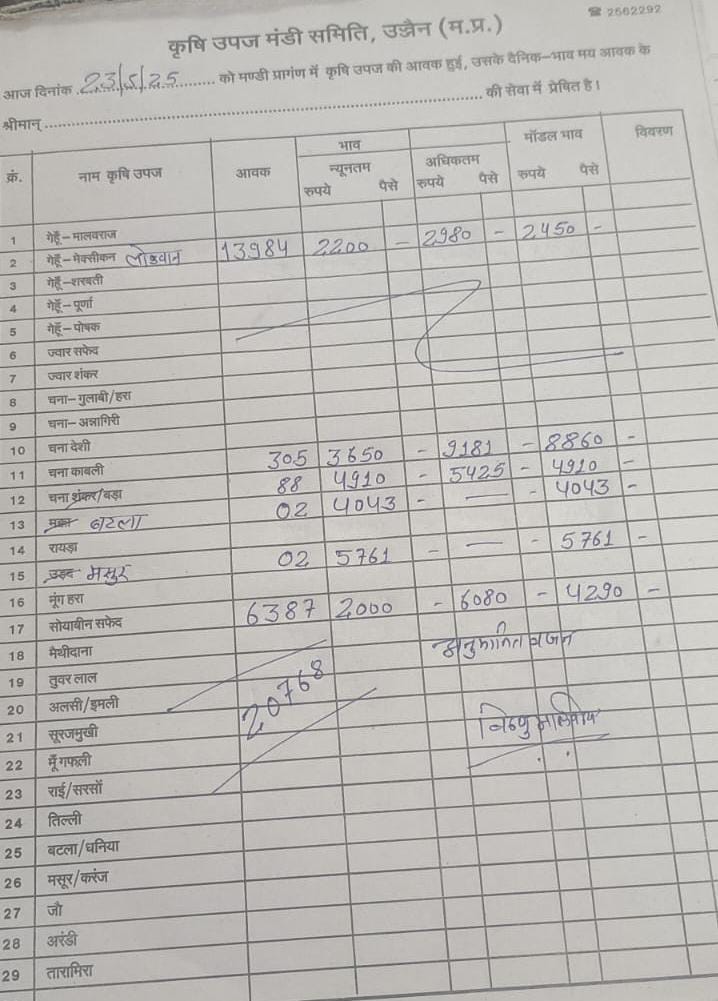 ☎ 2562292
कृषि उपज मंडी समिति, उज्जैन (म.प्र.)
आज दिनांक 23/5/25 को मण्डी प्रागंण में कृषि उपज की आवक हुई, उसके दैनिक-भाव मय आवक के
श्रीमान् की सेवा में प्रेषित है।
भाव मॉडल भाव विवरण
क्रं. नाम कृषि उपज आवक न्यूनतम अधिकतम
रुपये पैसे रुपये पैसे रुपये पैसे
1 गेहूँ-मालवराज
2 गेहूँ-मेक्सीकन लोकवान 13984 2200 - 2980 - 2450 -
3 गेहूँ-शरबती
4 गेहूँ-पूर्णा
5 गेहूँ-पोषक
6 ज्वार सफेद
7 ज्वार शंकर
8 चना-गुलाबी/हरा
9 चना-अन्नागिरी
10 चना देशी
11 चना काबली 305 3650 - 9181 - 8860 -
12 चना शंकर/बड़ा 88 4910 - 5425 - 4910 -
13 मक्का बटला 02 4043 - — - 4043 -
14 रायड़ा
15 उड़द मसुर 02 5761 - — - 5761 -
16 मूंग हरा
17 सोयाबीन सफेद 6387 2000 - 6080 - 4290 -
18 मैथीदाना अनुमानित वजन
19 तुवर लाल
20 अलसी/इमली 20768
21 सूरजमुखी
22 मूँगफली
23 राई/सरसों
24 तिल्ली
25 बटला/धनिया
26 मसूर/करंज
27 जौ
28 अरंडी
29 तारामिरा